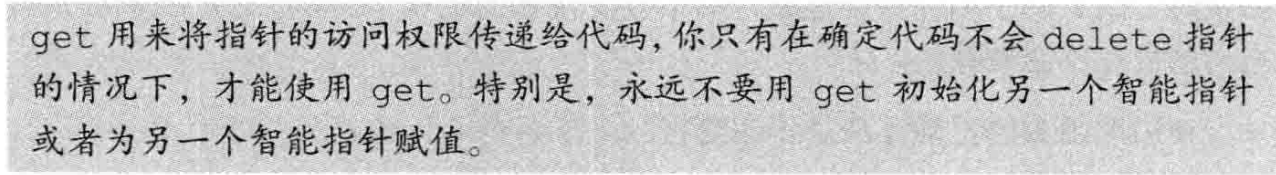 get 用来将指针的访问权限传递给代码，你只有在确定代码不会 delete 指针
的情况下，才能使用 get。特别是，永远不要用 get 初始化另一个智能指针
或者为另一个智能指针赋值。